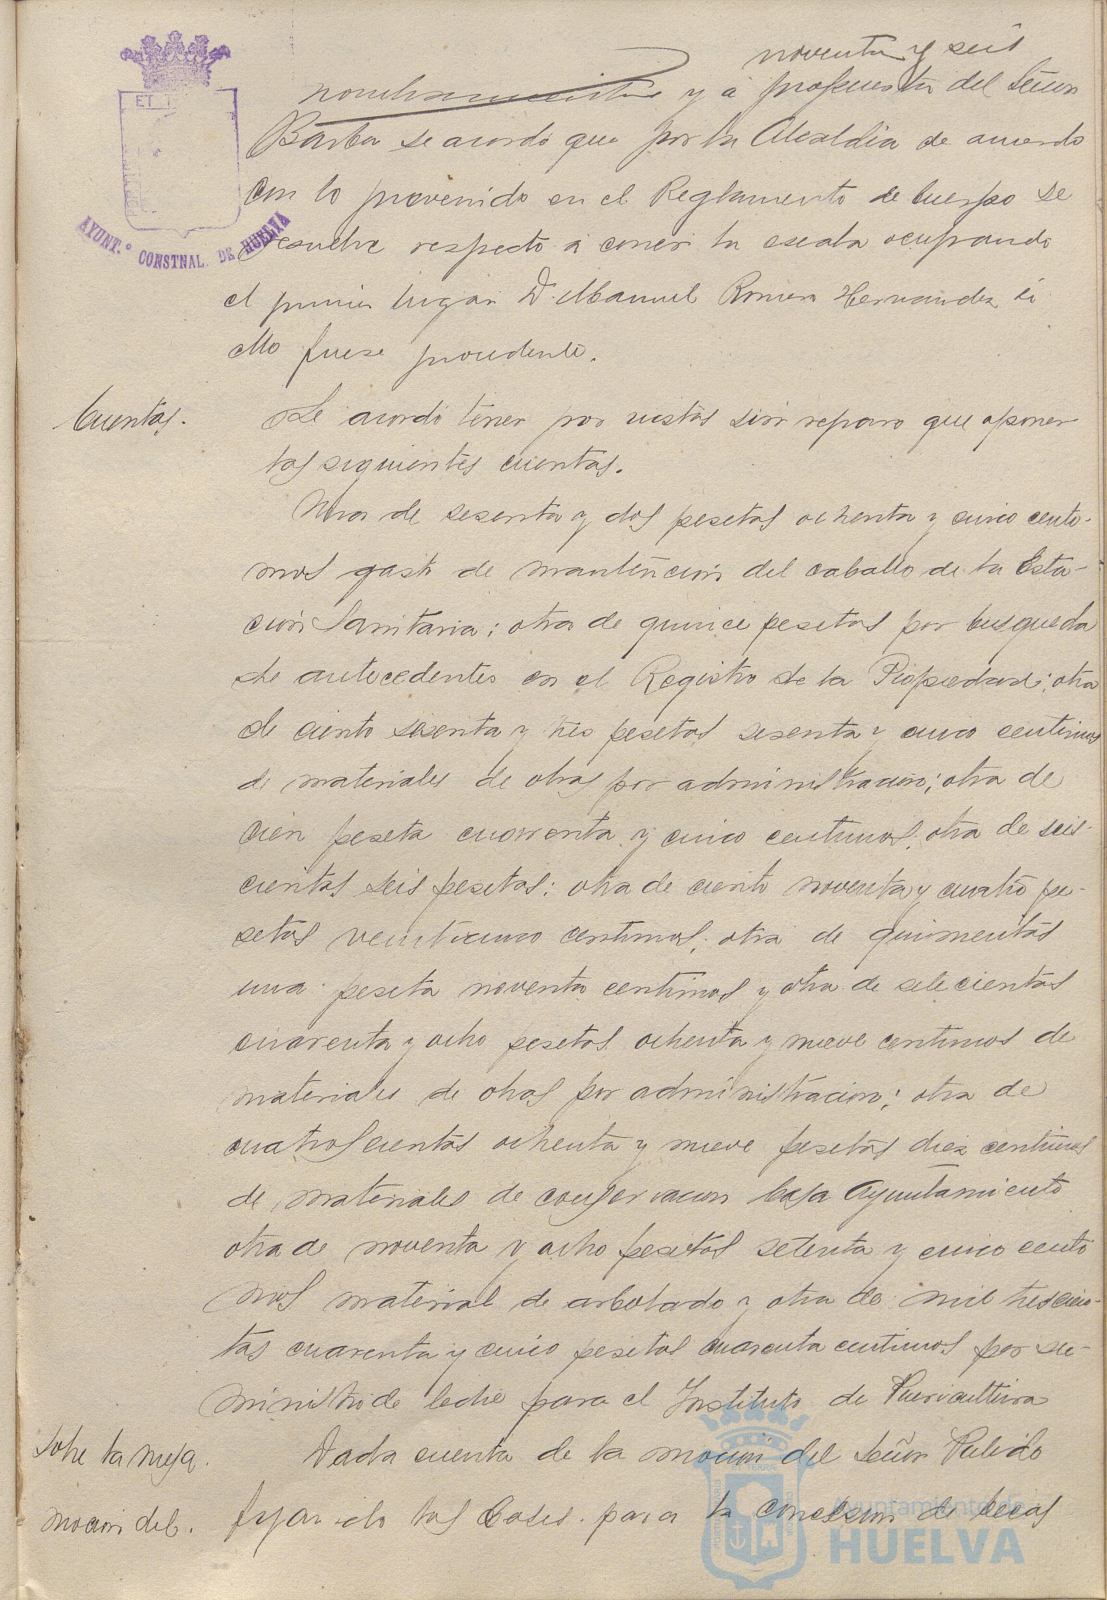 noventa y seis
nombramiento y á propuesta del Señor
Barba se acordó que por la Alcaldia de acuerdo
con lo prevenido en el Reglamento de Cuerpo se
resuelva respecto á correr la escala ocupando
el primer lugar D. Manuel Romero Hernandez si
ello fuese procedente.
Cuentas. Se acordó tener por vistas sin reparo que oponer
las siguientes cuentas.
Una de sesenta y dos pesetas ochenta y cinco centi-
mos gasto de mantencion del caballo de la Esta-
cion Sanitaria; otra de quince pesetas por busqueda
de antecedentes en el Registro de la Propiedad; otra
de ciento sesenta y tres pesetas sesenta y cinco centimos
de materiales de obras por administracion; otra de
cien peseta cuarenta y cinco centimos; otra de seis-
cientas seis pesetas; otra de ciento noventa y cuatro pe-
setas veinticinco centimos; otra de quinientas
una peseta noventa centimos y otra de setecientas
cuarenta y ocho pesetas ochenta y nueve centimos de
materiales de obras por administracion; otra de
cuatroscientas ochenta y nueve pesetas diez centimos
de materiales de conservacion casa Ayuntamiento
otra de noventa y ocho pesetas setenta y cinco centi
mos material de arbolado y otra de mil trescien-
tas cuarenta y cinco pesetas cuarenta centimos por su-
ministro de leche para el Instituto de Puericultura
Sobre la mesa Dada cuenta de la mocion del Señor Pulido
mocion del. fijando las bases para la concesion de becas
AYUNT.º CONSTNAL. DE HUELVA
Ayuntamiento de
HUELVA